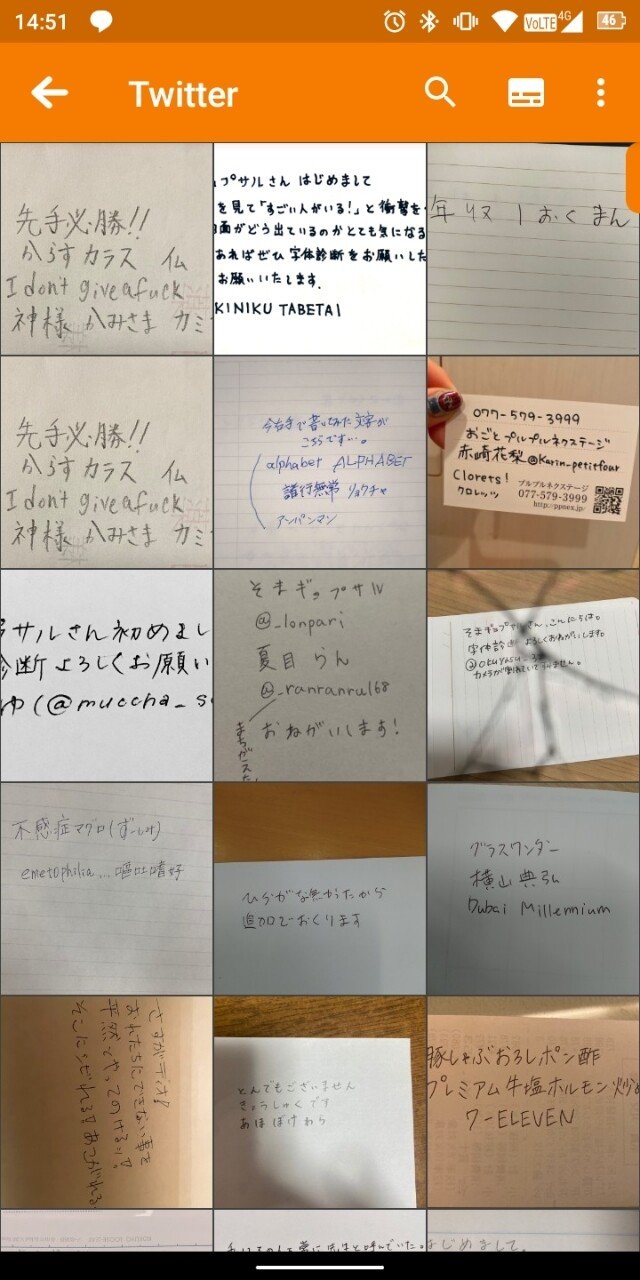 14:51
VoLTE
4G
46
Twitter
先手必勝!!
からす カラス 仏
I dont give a fuck
神様 かみさま カミ
プサルさん はじめまして
を見て「すごい人がいる!」と衝撃を
面がどう出ているのかとても気になる
あればぜひ 字体診断をお願いした
お願いいたします.
KINIKU TABETAI
年収 1おくまん
先手必勝!!
からす カラス 仏
I dont give a fuck
神様 かみさま カミ
今右手で書いてみた文字が
こちらです…。
alphabet ALPHABET
諸行無常 リョクチャ
アンパンマン
077-579-3999
おごとプルプルネクステージ
赤崎花梨@Karin-petitfour
Clorets!
クロレッツ
プルプルネクステージ
077-579-3999
http://ppnex.jp/
サルさん初めまし
診断よろしくお願い
ゆ(@muccha_s
そまギップサル
@_lonpari
夏目らん
@_ranranru168
おねがいします!
まちがえた
そまギップサルさん、こんにちは。
字体診断よろしくおねがいします。
カメラが
いません。
不感症マグロ(ずーしみ)
emetophilia...嘔吐嗜好
ひらがな無かったから
追加でおくります
グラスワンダー
横山典弘
Dubai Millennium
さすがディオ!
おれたちにできない事を
平然とやってのけるッ!
そこにシビれる!あこがれる
とんでもございません
きょうしゅくです
あほぼけわら
豚しゃぶおろしポン酢
プレミアム牛塩ホルモン炒め
7-ELEVEN
はじめまして。